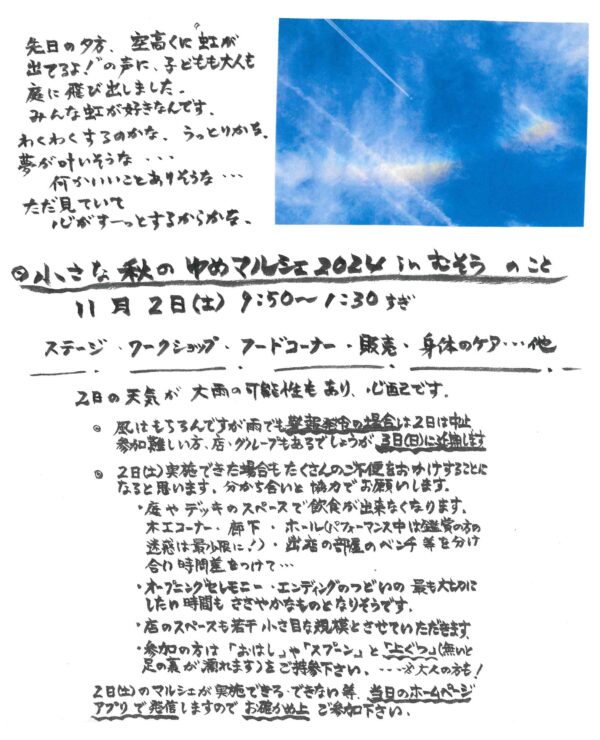 先日の夕方、空高くに虹が
出てるよ！の声に、子どもも大人も
庭に飛び出しました。
みんな虹が好きなんです。
わくわくするのかな、うっとりかな。
夢が叶いそうな・・・
何かいいことありそうな・・・
ただ見ていて
心がすーっとするからかな。
◎小さな秋のゆめマルシェ2024 in むそう のこと
11月2日(土) 9:50〜1:30すぎ
ステージ・ワークショップ・フードコーナー・販売・身体のケア・・・他
2日の天気が大雨の可能性もあり、心配です。
◎ 風はもちろんですが雨でも警報発令の場合は2日は中止
参加難しい方、店・グループもあるでしょうが、3日(日)に延期します
◎ 2日(土)実施できた場合もたくさんのご不便をおかけすることに
なると思います。分かち合いと協力でお願いします。
・庭やデッキのスペースで飲食が出来なくなります。
木工コーナー・廊下・ホール(パフォーマンス中は鑑賞の方の
迷惑は最小限に！)・出店の部屋のベンチ等を分け
合い時間差をつけて・・・
・オープニングセレモニー・エンディングのつどいの最も大切に
したい時間もささやかなものとなりそうです。
・店のスペースも若干小さ目な規模とさせていただきます。
・参加の方は「おはし」や「スプーン」と「上ぐつ」(無いと
足の裏が濡れます)をご持参下さい。・・・※大人の方も！
2日(土)のマルシェが実施できる・できない等、当日のホームページ
アプリで発信しますのでお確かめ上ご参加下さい。